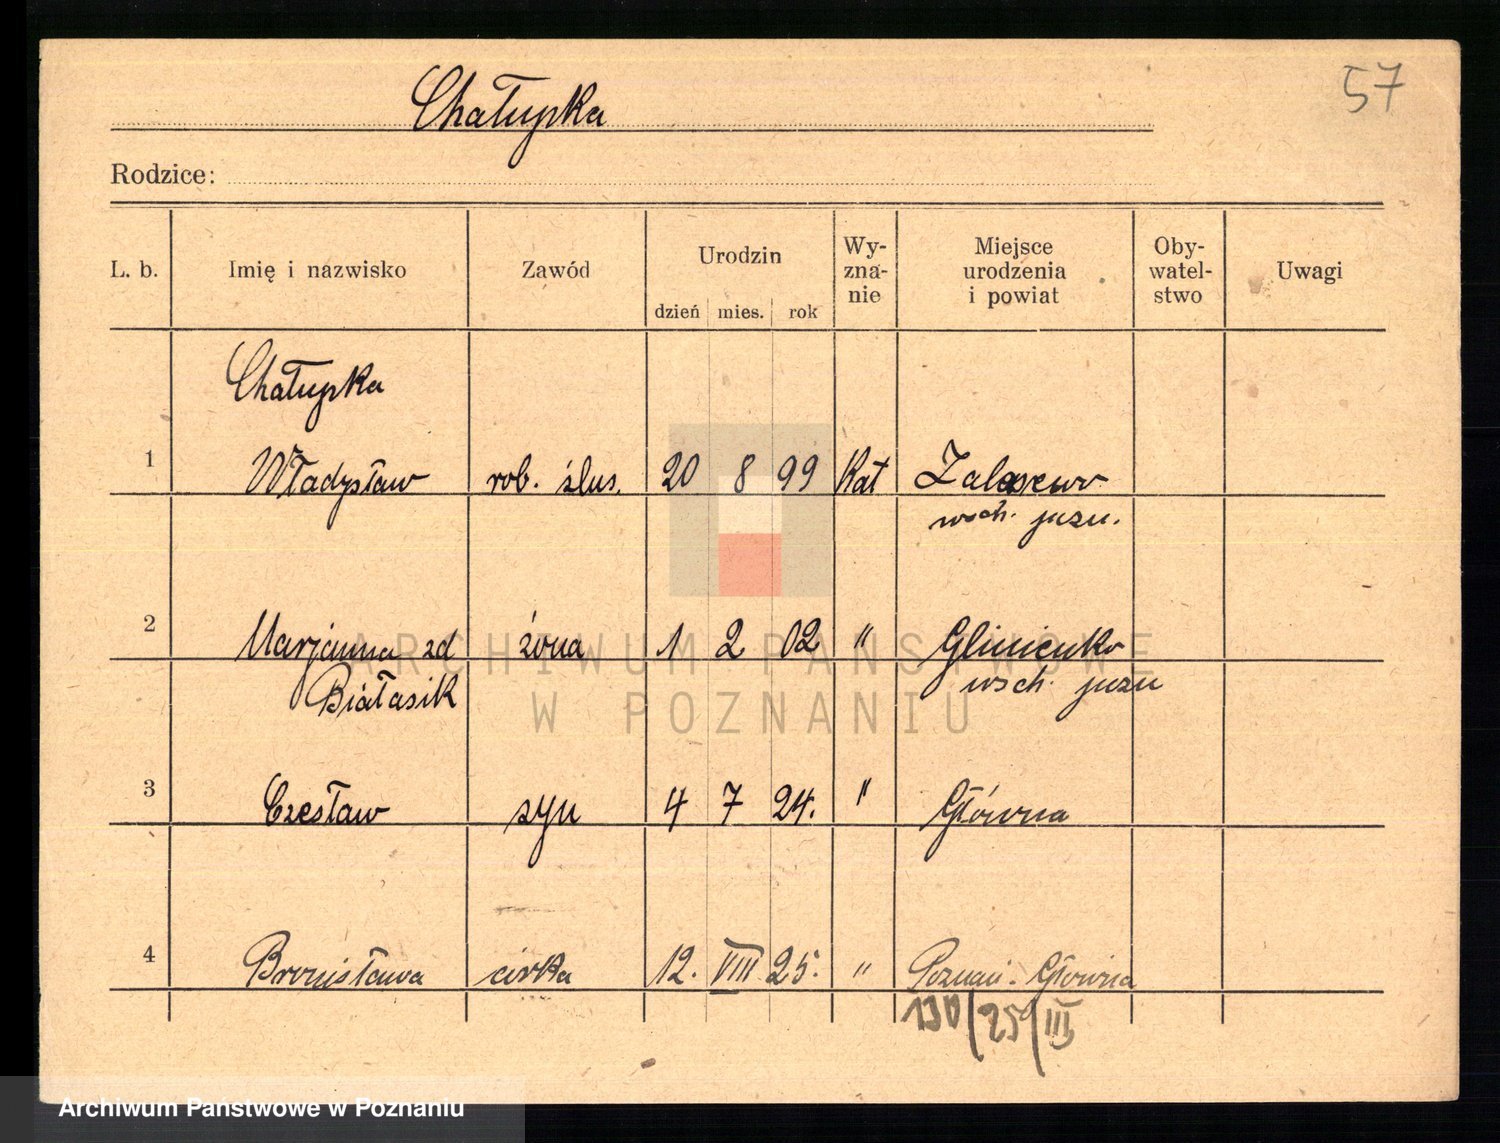 Chałupka
57
Rodzice:
L. b. Imię i nazwisko Zawód Urodzin dzień mies. rok Wy-zna-nie Miejsce urodzenia i powiat Oby-watel-stwo Uwagi
Chałupka
1 Władysław rob. ślus. 20 8 99 Kat Zalasewo
wsch.
2 Marjanna zd żona 1 2 02 " Glinienko
Białasik wsch.
3 Czesław syn 4 7 24. " Główna
4 Bronisława córka 12. VIII 25. " Poznań-Główna
130/25/III
ARCHIWUM PAŃSTWOWE
W POZNANIU
Archiwum Państwowe w Poznaniu